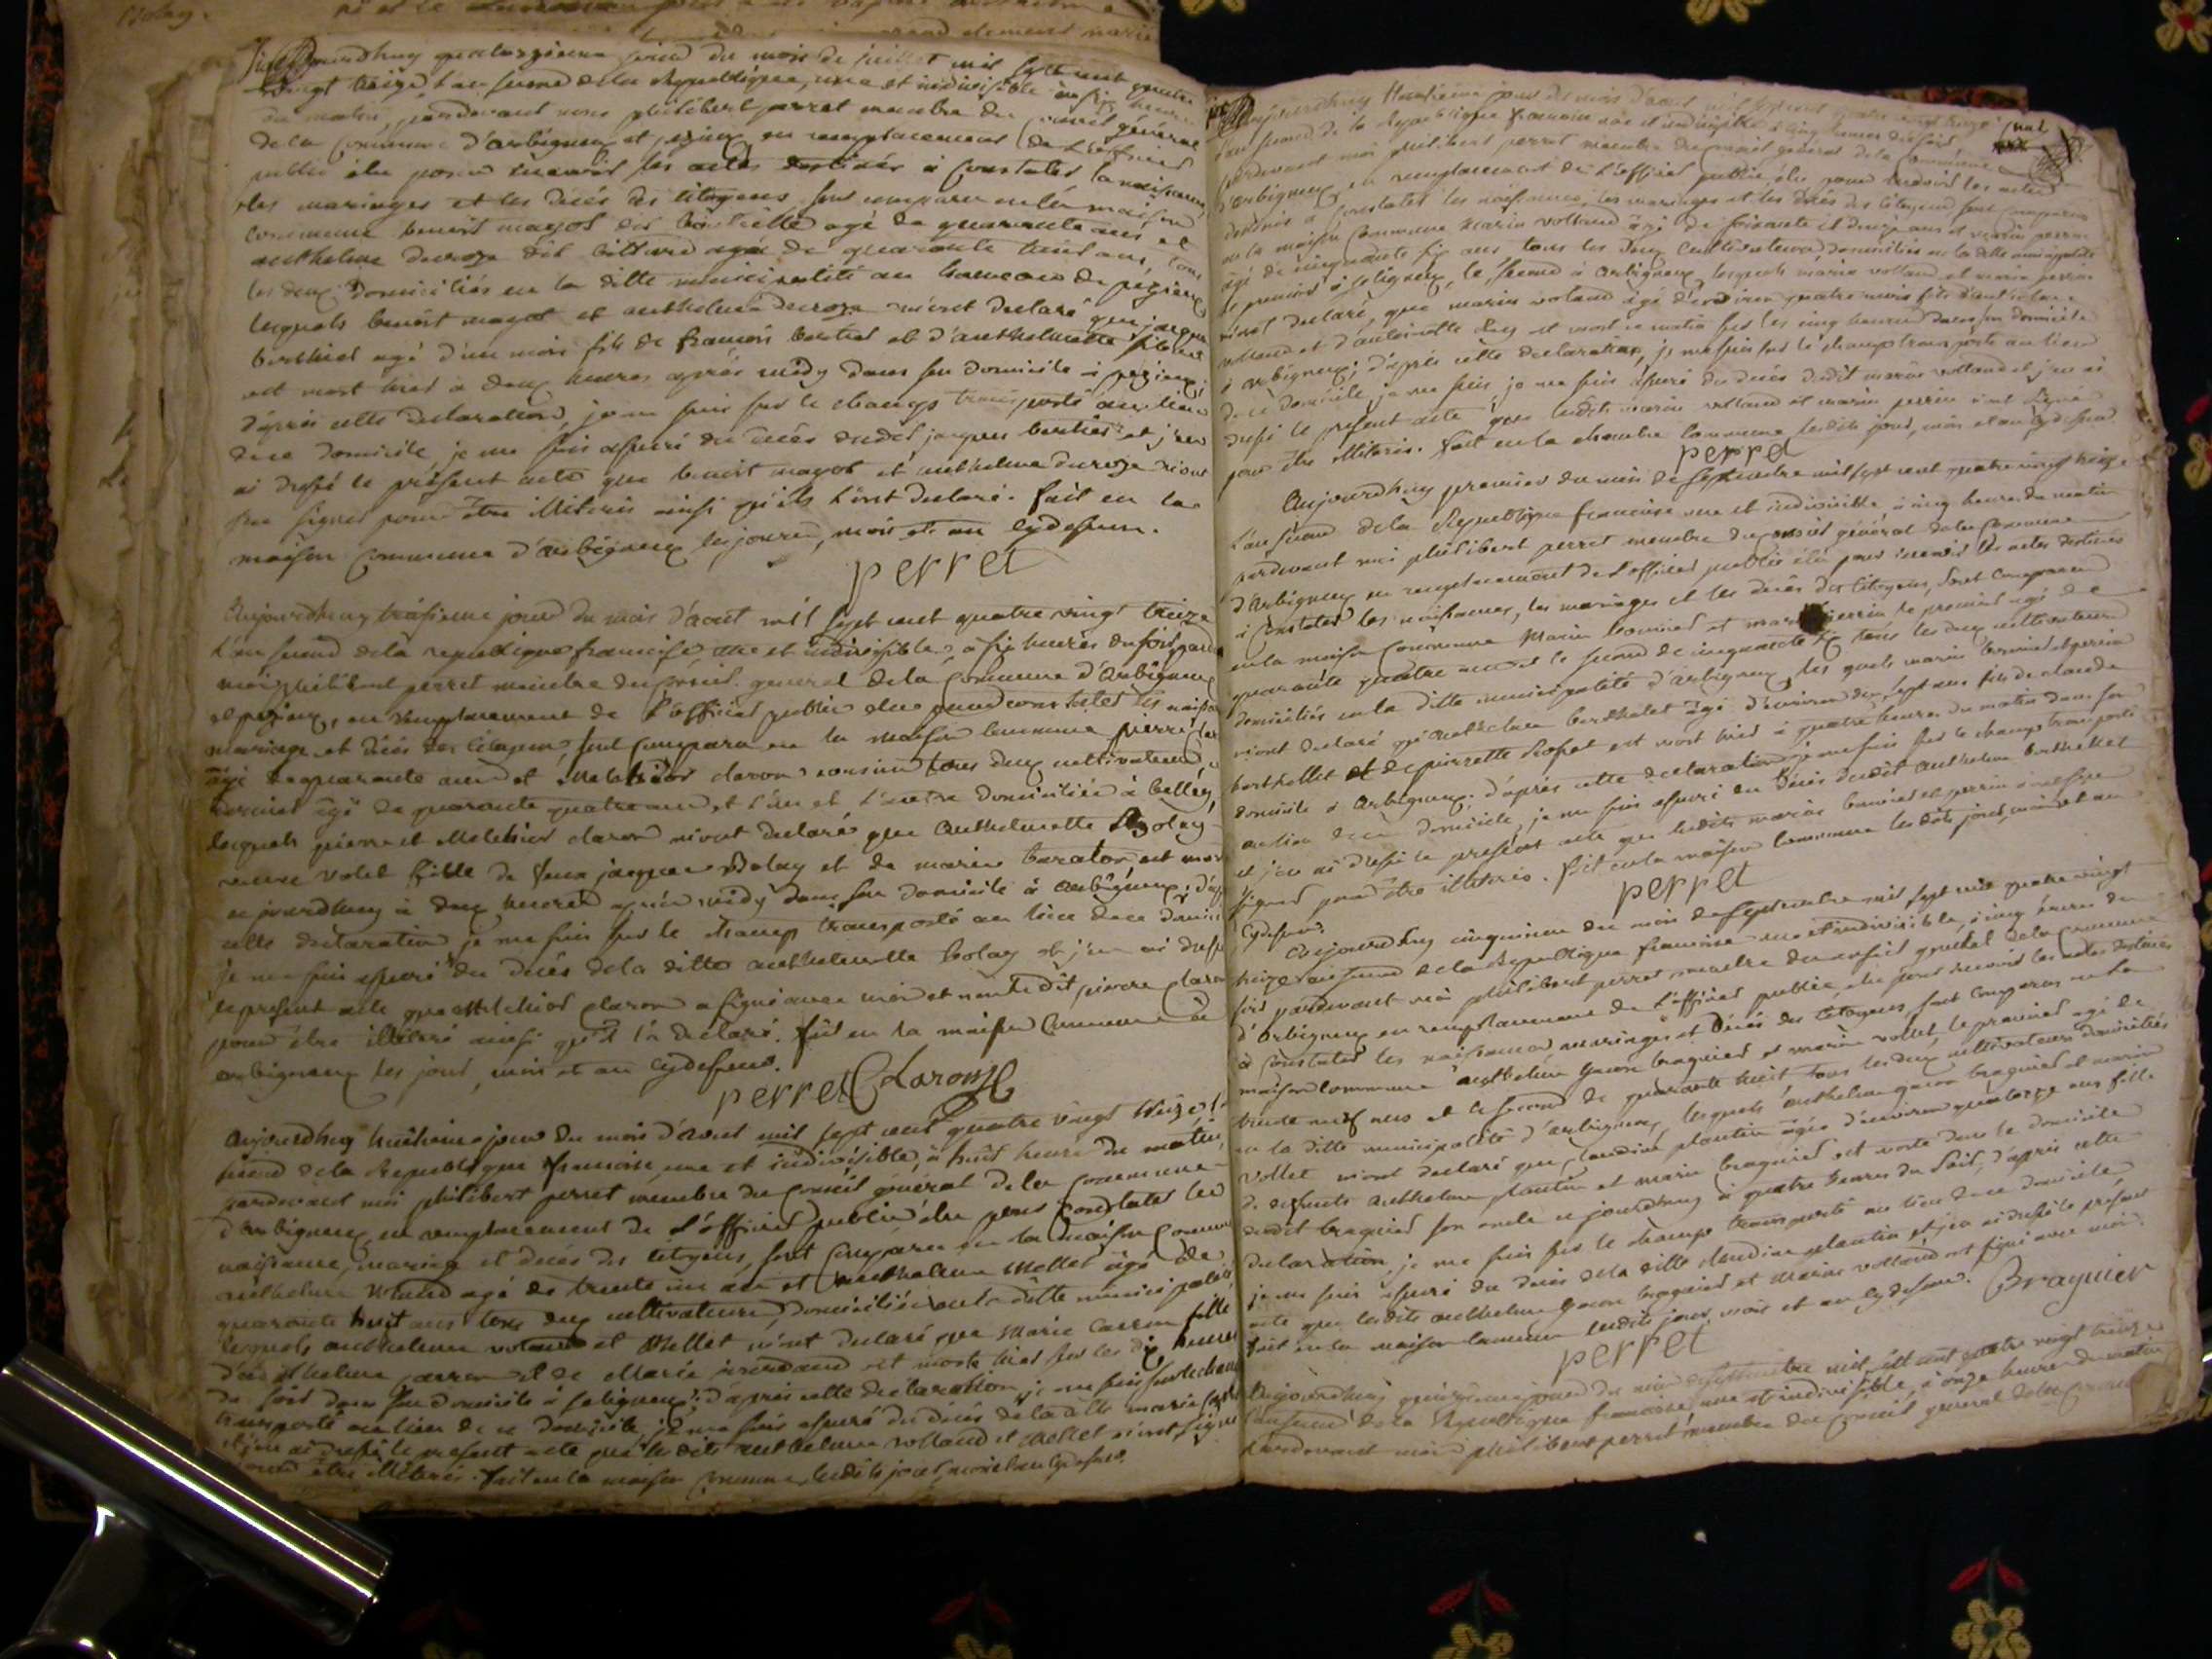 Bolay.
Aujourdhuy quatorzieme jour du mois de juillet mil sept cent quatre
vingt treize, l'an second de la republique, une et indivisible à six heures
du matin, pardevant nous philibert perret membre du conseil général
de la commune d'arbigneux et pezieux en remplacement de l'officier
public élu pour recevoir les actes destinés à constater la naissance,
les mariages et les décés des citoyens sont comparu en la maison
commune benoit mayot dit agé de quarante ans et
anthelme deroze dit agé de quarante huit ans, tous
les deux domiciliés en la ditte municipalité au hameau de pezieux
lesquels benoit mayot et anthelme deroze m'ont declaré que jacques
berthier agé d'un mois fils de francois berthier et d'anthelmette
est mort hier à deux heures après midy dans son domicile à pezieux;
d'après cette declaration, je me suis sur le champs transporté au lieu
de ce domicile, je me suis assuré du decés dudit jacques berthier et j'en
ai dressé le présent acte que benoit mayot et anthelme deroze n'ont
sçu signer pour être illiterés ainsi qu'ils l'ont declaré. fait en la
maison commune d'arbigneux les jour, mois et an cydessus.
perret
Aujourdhuy troisieme jour du mois d'aout mil sept cent quatre vingt treize
l'an second de la republique francoise une et indivisible, à six heures du soir, parde
moi philibert perret membre du conseil general de la commune d'arbigneux
et pezieux, en remplacement de l'officier public elu pour constater les naissan
mariage et décés des citoyens, sont comparu en la maison commune pierre
agé de quarante ans et Melchior claron cousin tous deux cultivateurs
agé de quarante quatre ans, et l'un et l'autre domiciliés à belley,
lesquels pierre et Melchior claron m'ont declaré que anthelmette Bolay
veuve volet fille de feu jacques Bolay et de marie baraton est morte
ce jourdhuy à deux heures après midy dans son domicile à arbigneux; d'ap
cette declaration je me suis sur le champ transporté au lieu de ce domici
je me suis assuré du decés de la ditte anthelmette bolay et j'en ai dressé
le present acte que Melchior claron a signé avec moi et non ledit pierre claron
pour être illiteré ainsi qu'il l'a declaré. fait en la maison commune de
arbigneux les jour, mois et an cydessus.
perret Claron
Aujourdhuy huitieme jour du mois d'aout mil sept cent quatre vingt treize l'
second de la Republique francoise, une et indivisible, à huit heures du matin,
pardevant moi philibert perret membre du conseil general de la commune
d'arbigneux, en remplacement de l'officier public élu pour constater les
naissance, mariage et decés des citoyens, sont comparu en la maison commun
anthelme voland agé de trente un an et anthelme Mellet agé de
quarante huit ans tous deux cultivateurs, domiciliés en la ditte municipalité,
lesquels anthelme voland et Mellet m'ont declaré que Marie carron fille
d'anthelme carron et de Marie est morte hier sur les dix heures
du soir dans son domicile à seligneux; d'après cette declaration, je me suis sur le cham
transporté au lieu de ce domicile, je me suis assuré du decés de la dite marie
et j'en ai dressé le present acte que lesdits anthelme volland et Mellet n'ont signé
pour être illiterés. fait en la maison commune, lesdits jour, mois et an cydessus.
Aujourdhuy jour du mois d'aout mil sept cent quatre vingt treize
l'an second de la Republique francoise une et indivisible à cinq heures du soir,
pardevant moi philibert perret membre du conseil général de la commune
d'arbigneux, en remplacement de l'officier public élu pour recevoir les actes
destinés à constater les naissances, les mariages et les décés des citoyens sont comparu
en la maison commune marin volland agé de soixante et douze ans et marin perrin
agé de cinquante six ans, tous les deux cultivateurs, domiciliés en la ditte municipalité
le premier à seligneux, le second à arbigneux, lesquels marin volland et marin perrin
m'ont declaré, que marin voland agé d'environ quatre mois fils d'anthelme
volland et d'antoinette est mort ce matin sur les cinq heures dans son domicile
à arbigneux; d'après cette declaration, je me suis sur le champs transporté au lieu
de ce domicile, je me suis, je me suis assuré du decés dudit marin volland et j'en ai
dressé le present acte que lesdits marin volland et marin perrin n'ont signé
pour être illiterés. fait en la chambre commune lesdits jour, mois et an cydessus
perret
Aujourdhuy premier du mois de septembre mil sept cent quatre vingt treize
l'an second de la Republique francoise une et indivisible, à cinq heures du matin
pardevant moi philibert perret membre du conseil général de la commune
d'arbigneux en remplacement de l'officier public élu pour recevoir les actes destinés
à constater les naissances, les mariages et les decés des citoyens, sont comparu
en la maison commune Marin et marin perrin le premier agé de
quarante quatre ans et le second de cinquante six tous les deux cultivateurs
domiciliés en la ditte municipalité d'arbigneux, les quels marin et perrin
m'ont declaré qu'anthelme berthelet agé d'environ dix sept ans fils de claude
berthellet et de pierrette est mort hier à quatre heures du matin dans son
domicile à arbigneux; d'après cette declaration je me suis sur le champs transporté
au lieu de ce domicile, je me suis assuré du decés dudit anthelme berthellet
et j'en ai dressé le present acte que lesdits marin et perrin n'ont sçu
signer pour être illiterés. fait en la maison commune lesdits jour, mois et an
cydessus.
perret
Aujourdhuy cinquieme du mois de septembre mil sept cent quatre vingt
treize l'an second de la Republique francoise une et indivisible, à cinq heures du
soir pardevant moi philibert perret membre du conseil general de la commune
d'arbigneux en remplacement de l'officier public élu pour recevoir les actes destinés
à constater les naissances mariages et decés des citoyens sont comparu en la
maison commune anthelme braguier et marin vollet, le premier agé de
trente neuf ans et le second de quarante huit, tous les deux cultivateurs domiciliés
en la ditte municipalité d'arbigneux, lesquels anthelme braguier et marin
vollet m'ont declaré que claudine plantin agée d'environ quatorze ans fille
de defunts anthelme plantin et marie braguier est morte dans le domicile
dudit braguier son oncle ce jourdhuy à quatre heures du soir, d'après cette
declaration, je me suis sur le champs transporté au lieu de ce domicile
je me suis assuré du decés de la ditte claudine plantin et j'en ai dressé le présent
acte que lesdits anthelme braguier et marin volland ont signé avec moi.
fait en la maison commune lesdits jour, mois et an cydessus. Braguier
perret
Aujourdhuy quinzieme jour du mois de septembre mil sept cent quatre vingt treize
l'an second de la Republique francoise une et indivisible, à onze heures du matin
pardevant moi philibert perret membre du conseil general de la commune